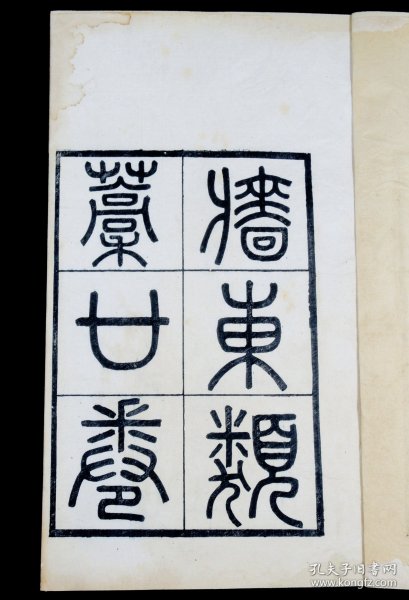 牆東類
藁廿卷
孔夫子旧书网
www.kongfz.com